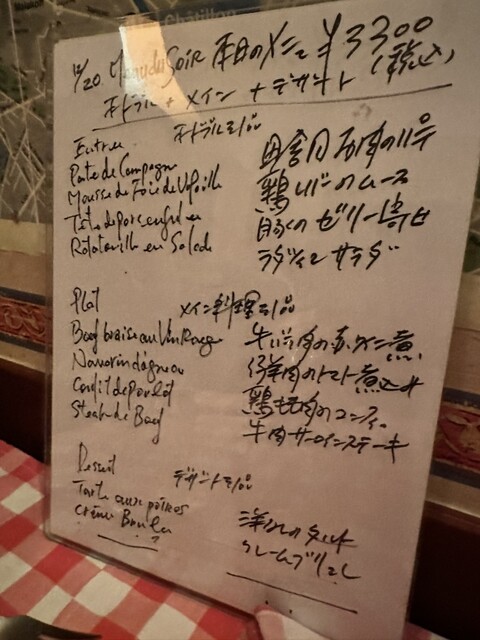 Châtillon
12/20 Menu du Soir 本日のメニュ ¥3300
オードブル + メイン + デザート (税込)
Entree オードブル1品
Pate de Campagne 田舎風お肉のパテ
Mousse de Foie de Volaille 鶏レバーのムース
Tête de porc en gelée 豚のゼリー寄せ
Ratatouille en Salade ラタトゥイユ サラダ
Plat メイン料理1品
Boeuf braise au Vin Rouge 牛ほほ肉の赤ワイン煮
Navarin d'agneau 仔羊肉のトマト煮込み
Confit de poulet 鶏もも肉のコンフィ
Steak de Boeuf 牛肉サーロインステーキ
Dessert デザート1品
Tarte aux poires 洋なしのタルト
Crème Brulee クレームブリュレ